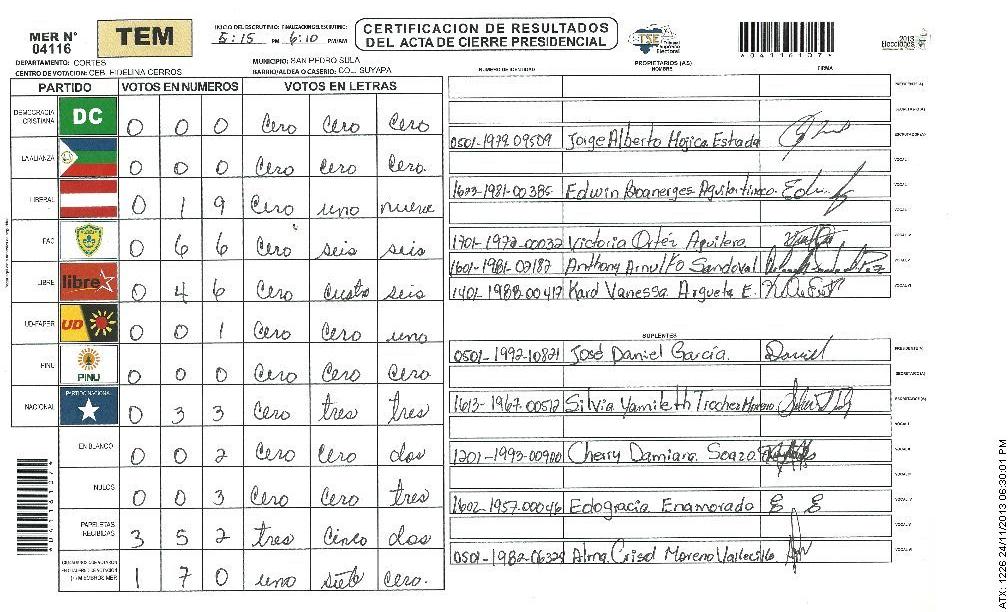 MER N° 04116
TEM
INICIO DEL ESCRUTINIO: 5:15 PM FINALIZACION DEL ESCRUTINIO: 6:10 PM/AM
CERTIFICACION DE RESULTADOS
DEL ACTA DE CIERRE PRESIDENCIAL
TSE Tribunal Supremo Electoral
*04116107*
2013
Elecciones
DEPARTAMENTO: CORTES
MUNICIPIO: SAN PEDRO SULA
CENTRO DE VOTACION: CEB. FIDELINA CERROS
BARRIO/ALDEA O CASERIO: COL. SUYAPA
PROPIETARIOS (AS)
NUMERO DE IDENTIDAD NOMBRE FIRMA
PARTIDO VOTOS EN NUMEROS VOTOS EN LETRAS
DEMOCRACIA CRISTIANA DC 0 0 0 Cero Cero Cero
LA ALIANZA 0 0 0 Cero Cero Cero.
LIBERAL 0 1 9 Cero uno nueve
PAC 0 6 6 Cero seis seis
LIBRE libre 0 4 6 Cero cuatro seis
UD-FAPER UD 0 0 1 Cero Cero uno
PINU PINU 0 0 0 Cero Cero Cero
NACIONAL PARTIDO NACIONAL 0 3 3 Cero tres tres
EN BLANCO 0 0 2 Cero Cero dos
NULOS 0 0 3 Cero Cero tres
PAPELETAS RECIBIDAS 3 5 2 tres Cinco dos
1 7 0 uno siete Cero.
PRESIDENTE (A)
SECRETARIO (A)
0501-1979-09509 Jorge Alberto Mojica Estrada ESCRUTADOR (A)
VOCAL I
1623-1981-00385 Edwin Boanerges Aguilar VOCAL
VOCAL
1701-1972-00032 Victoria Ortéz Aguilera VOCAL
1601-1981-02182 Anthony Arnulfo Sandoval VOCAL V
1401-1988-00417 Karol Vanessa Argueta E. VOCAL VI
SUPLENTES
0501-1992-10821 José Daniel García. Daniel PRESIDENTE (A)
SECRETARIO (A)
1613-1967-00512 Silvia Yamileth Trochez Moreno ESCRUTADOR (A)
VOCAL I
1201-1993-00900 Cherry Damiana VOCAL
VOCAL
1602-1957-00046 Edogracia Enamorado E E VOCAL V
VOCAL V
0501-1982-06329 Alma Crisol Moreno Vallecillo VOCAL VI
*04116107*
ATX: 1226 24/11/2013 06:30:01 PM